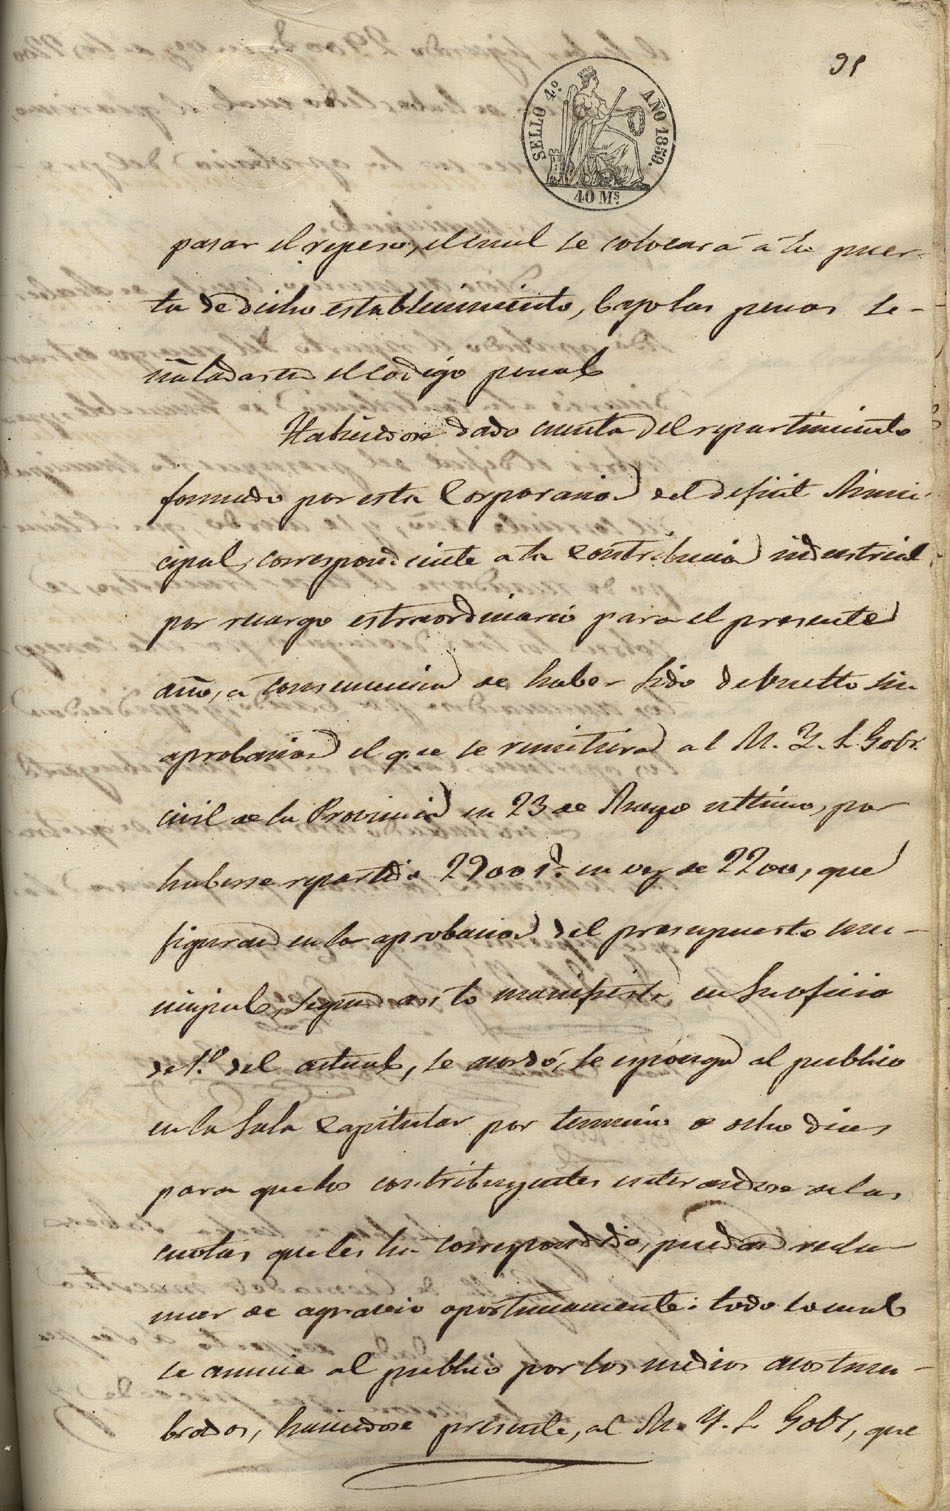 91
SELLO 4.º AÑO 1859.
40 Ms.
pasar el repeso, el cual se colocará á la puer-
ta de dicho establecimiento, bajo las penas se-
ñaladas en el Codigo penal
Habiendose dado cuenta del repartimiento
formado por esta Corporacion del deficit Muni-
cipal, correspondiente a la contribucion industrial
por recargo estraordinario para el presente
año, a consecuencia de haber sido debuelto sin
aprobacion el que se remitiera al M. Y. S. Gobr.
civil de la Provincia en 23 de Mayo ultimo, por
haberse repartido 2900 rs. en vez de 2200, que
figuran en la aprobacion del presupuesto mu-
nicipal, segun asi lo manifiesta en su oficio
de 1.º del actual, se acordó, se esponga al publico
en la Sala Capitular por termino de ocho dias
para que los contribuyentes enterandose de las
cuotas que les ha correspondido, puedan recla-
mar de agravio oportunamente: todo lo cual
se anuncie al publico por los medios acostum-
brados, haciendose presente, al M. Y. S. Gobr, que